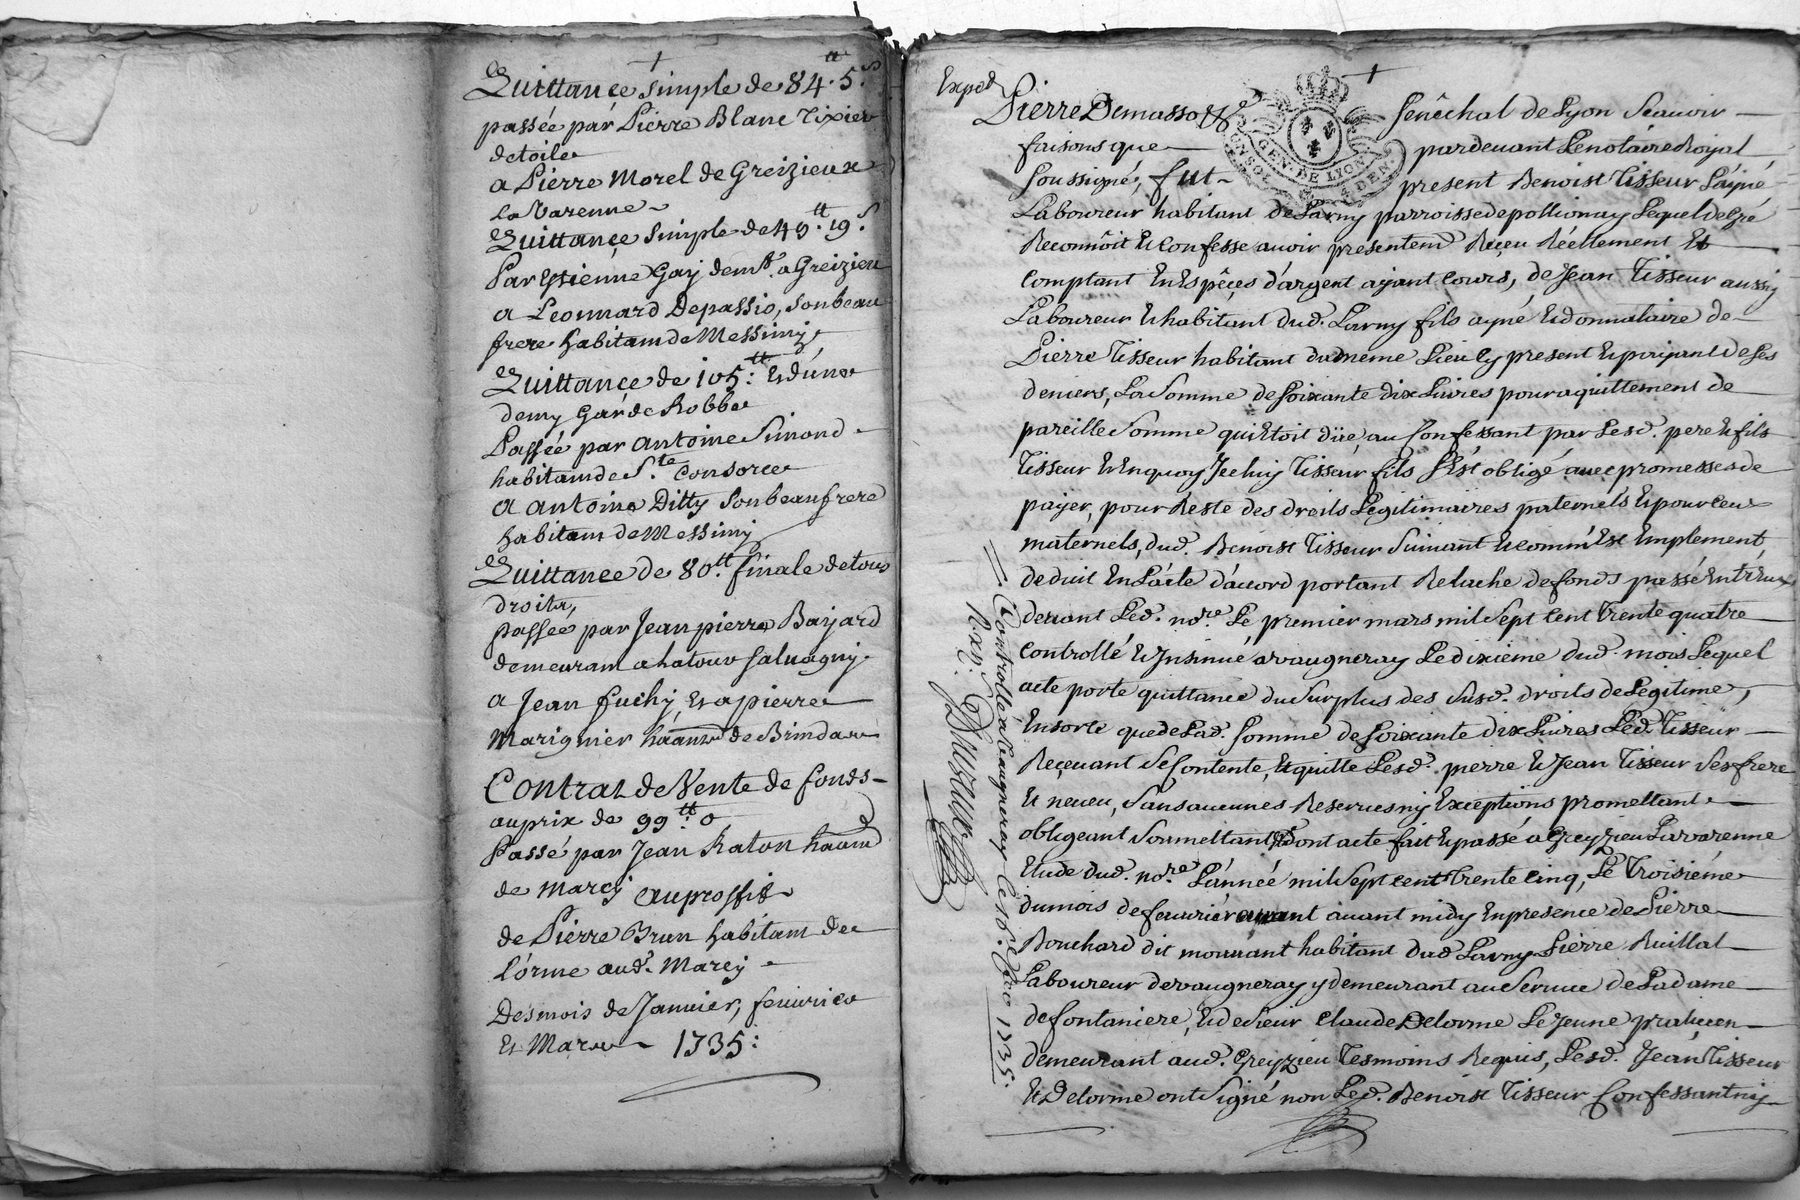 Quittance simple de 84.tt 5.s
passée par Pierre Blanc Tixier
detoile
a Pierre Morel de Greizieux
la Varenne
Quittance simple de 49.tt 19.s
Par Estienne Gay demt. a Greizieu
a Leonnard Depassio, son beau
frere habitam de Messimy
Quittance de 105.tt Et dúne
demy Garde Robbe
Passée par antoine Simond
habitam de Ste. Consorce
a antoine Ditty son beaufrere
habitam de Messimy
Quittance de 80.tt finale de tous
droits,
passée par Jean pierre Bajard
demeurant a latour salvagny.
a Jean fuchy, Et a pierre
Marignier de Brindas
Contrat de Vente de fonds
au prix de 99.tt 0
Passé par Jean Raton
de Marcy au proffit
de Pierre Brun habitam de
L'orme aud. Marcy
Des mois de Janvier, fevrier
Et Mars 1735:
Exped
Pierre Demasso
GEN. DE LYON
Senêchal de Lyon Scavoir
faisons que pardevant Le notaire Royal
soussigné, fut present Benoist Tisseur Laisné
Laboureur habitant de Larny parroisse de pollionay Lequel de gré
Reconnôit Et Confesse avoir presentemt. Reçeu Réellement Et
Comptant En Espêçes d'argent ayant Cours, de Jean Tisseur aussy
Laboureur Et habitant dud. Larny fils ayné Et donnataire de
Pierre Tisseur habitant du même Lieu Cy present Et payant de ses
deniers, La Somme de soixante dix Livres pour aquittement de
pareille somme qui Etoit düe au Confessant par Lesd. pere Et fils
Tisseur Et En quoy Jceluy Tisseur fils s'Est obligé avec promesses de
payer, pour Reste des droits Legitimaires paternels Et pour ceux
maternels, dud. Benoist Tisseur Suivant Et comm'Est Emplement
deduit En L'acte d'accord portant Relache de fonds passé Entr'Eux
devant Led. nore. Le premier mars mil sept cent trente quatre
Controllé Et Jnsinué a vaugneray Le dixieme dud. mois Lequel
acte porte quittance du surplus des susd. droits de Legitime,
En sorte que de Lad. somme de soixante dix Livres Led. Tisseur
Reçevant se Contente, Et quitte Lesd. pierre Et Jean Tisseur ses frere
Et neveu, sans aucunnes Reserves ny Exceptions promettant
obligeant soumettant Dont acte fait Et passé a Greyzieu Lavarenne
Etude dud. nore. L'année mil sept cent trente cinq, Le Troisiéme
du mois de fevrier avant midy En presence de Pierre
Bouchard dit mouvant habitant dud Larny Pierre Ruillat
Laboureur de vaugneray y demeurant au service de La dame
de fontaniere, Et de sieur Claude Delorme Le Jeune praticien
demeurant aud. Greyzieu Tesmoins Requis, Lesd. Jean Tisseur
Et Delorme ont signé non Led. Benoist Tisseur Confessant ny
Controllé a Vaugneray Le 16. 1735.